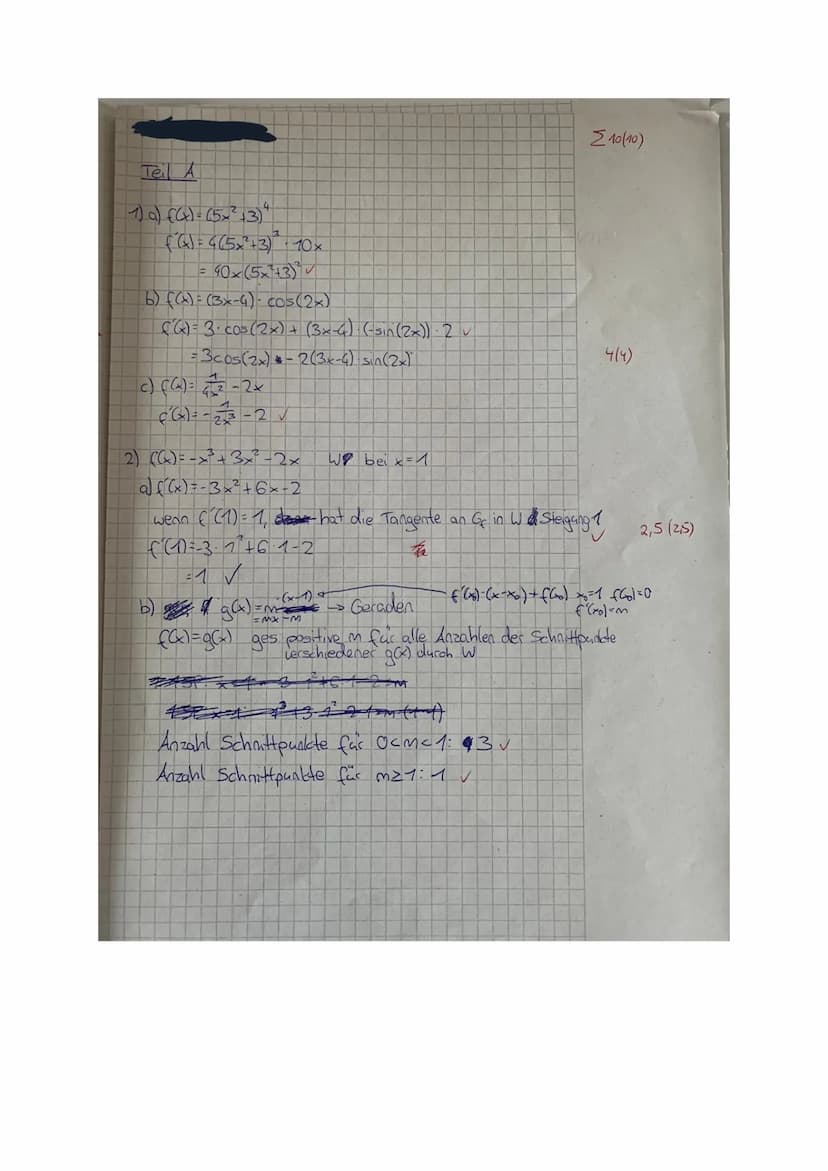 Σ 10(10)
Teil A
1) a) f(x) = (5x²+3)⁴
f'(x) = 4(5x²+3)³ · 10x
= 40x(5x²+3)³ ✓
b) f(x) = (3x-4) · cos(2x)
f'(x) = 3 · cos(2x) + (3x-4) · (-sin(2x)) · 2 ✓
= 3cos(2x) - 2(3x-4) sin(2x)
4(4)
c) f(x) = 1/4x² - 2x
f'(x) = - 1/2x³ - 2 ✓
2) f(x) = -x³ + 3x² - 2x W bei x=1
a) f'(x) = -3x² + 6x - 2
wenn f'(1) = 1, hat die Tangente an Gf in W Steigung 1 ✓
2,5 (2,5)
f'(1) = -3 · 1² + 6 · 1 - 2
= 1 ✓
b) g(x) = m ·(x-1) → Geraden f'(x₀)·(x-x₀)+f(x₀) x₀=1 f(x₀)=0
= mx - m f'(x₀)=m
f(x) = g(x) ges positive m für alle Anzahlen der Schnittpunkte
verschiedener g(x) durch W
Anzahl Schnittpunkte für 0<m<1: 3 ✓
Anzahl Schnittpunkte für m≥1: 1 ✓